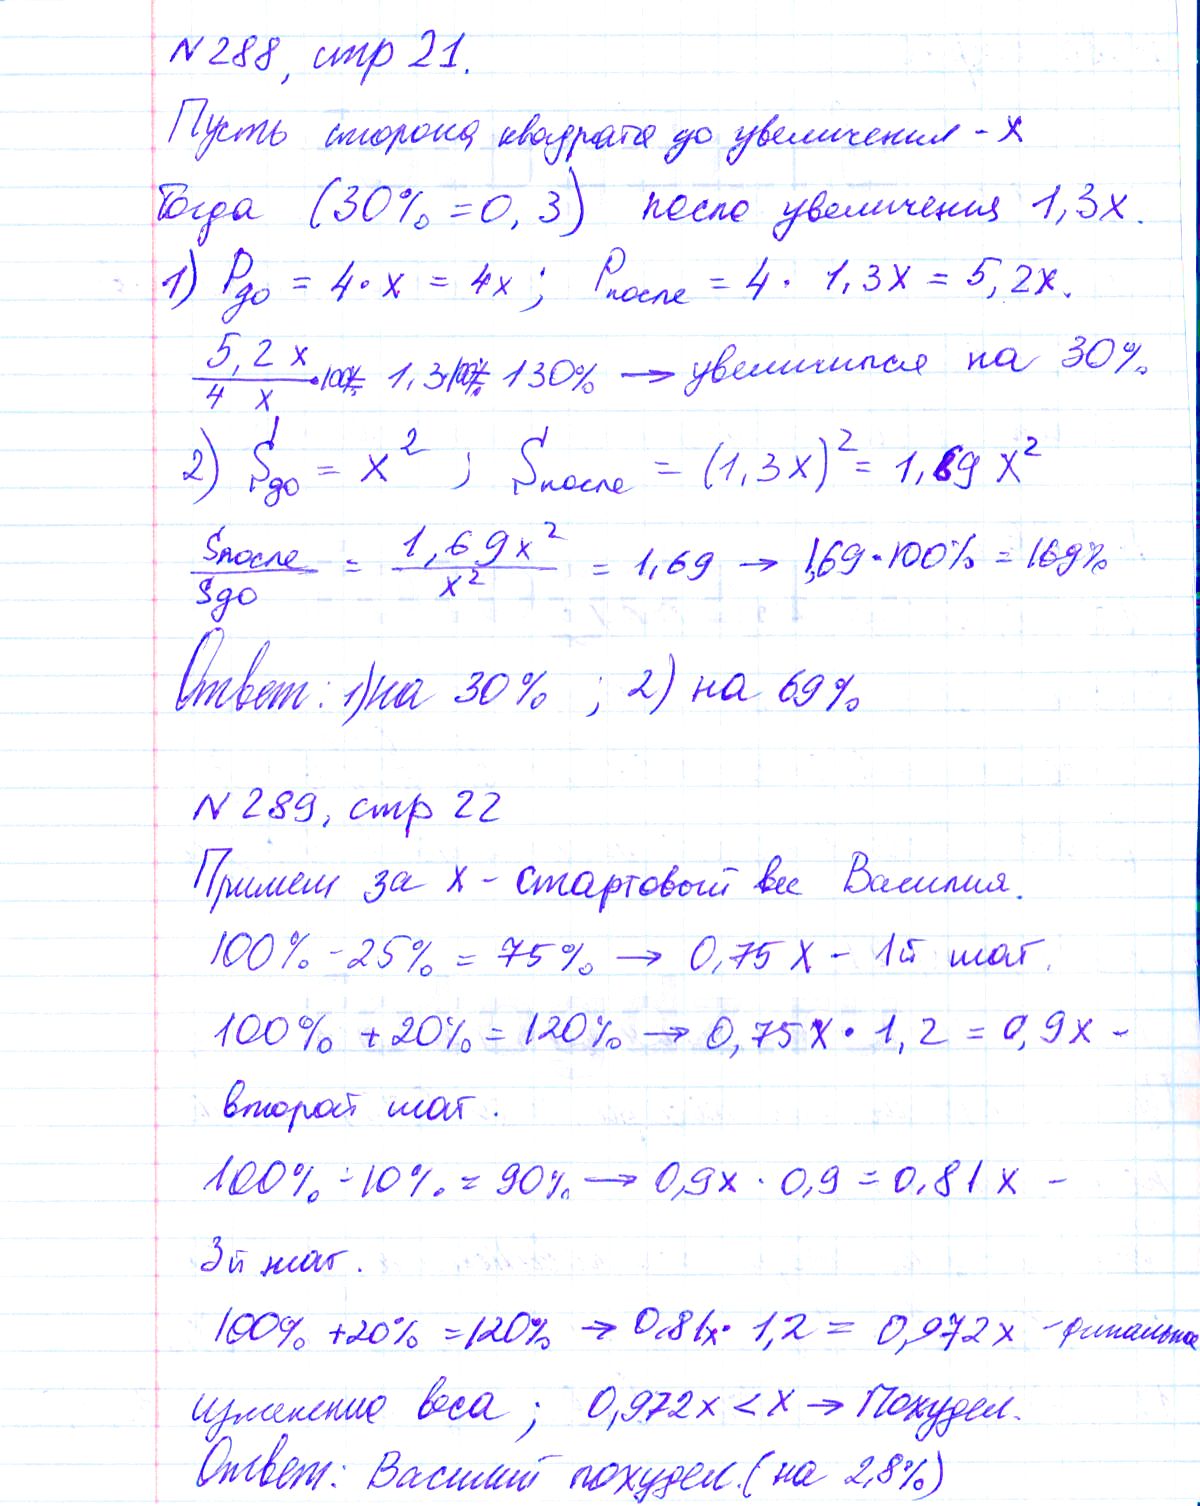 N 288, стр 21.
Пусть сторона квадрата до увеличения - x
Тогда (30% = 0,3) после увеличения 1,3x.
1) Pдо = 4·x = 4x; Pпосле = 4 · 1,3x = 5,2x.
5,2x / 4x ·100% = 1,3·100% = 130% → увеличился на 30%.
2) Sдо = x²; Sпосле = (1,3x)² = 1,69x²
Sпосле / Sдо = 1,69x² / x² = 1,69 → 1,69·100% = 169%
Ответ: 1) на 30%; 2) на 69%
N 289, стр 22
Примем за x - стартовый вес Василия.
100% - 25% = 75% → 0,75x - 1й шаг.
100% + 20% = 120% → 0,75x · 1,2 = 0,9x -
второй шаг.
100% - 10% = 90% → 0,9x · 0,9 = 0,81x -
3й шаг.
100% + 20% = 120% → 0,81x · 1,2 = 0,972x - финальное
изменение веса; 0,972x < x → Похудел.
Ответ: Василий похудел. (на 2,8%)